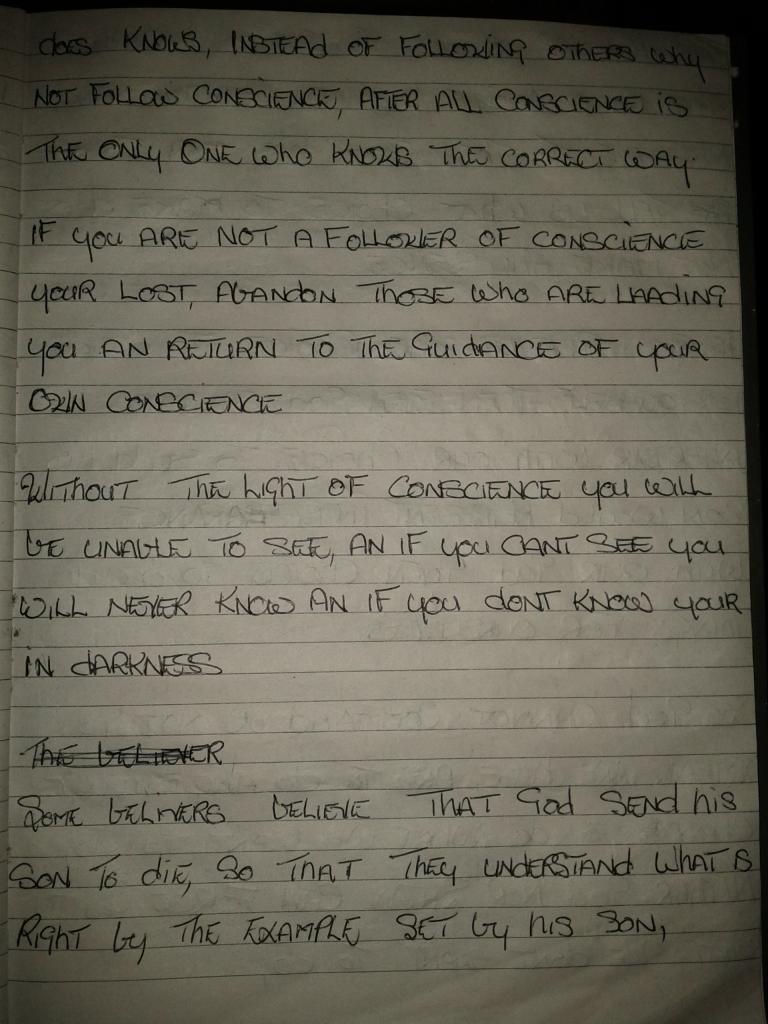 does KNOWS, INSTEAD OF FOLLOWING OTHERS why
NOT FOLLOW CONSCIENCE, AFTER ALL CONSCIENCE is
THE ONLY ONE who KNOWS THE CORRECT WAY.
IF you ARE NOT A FOLLOWER OF CONSCIENCE
YOUR LOST, ABANDON THOSE who ARE LAADING
you AN RETURN TO THE GuidANCE OF your
OWN CONSCIENCE
WITHOUT THE LIGHT OF CONSCIENCE you WILL
bE UNABLE TO SEE, AN IF you CANT SEE you
WILL NEVER KNOW AN IF you dONT KNOW YOUR
IN dARKNESS
THE bELIEVER
SOME bELIVERS bELIEVE THAT God SENd his
SON TO diE, SO THAT THEY UNDERSTANd WHAT IS
RIGHT by THE EXAMPLE SET by his SON,